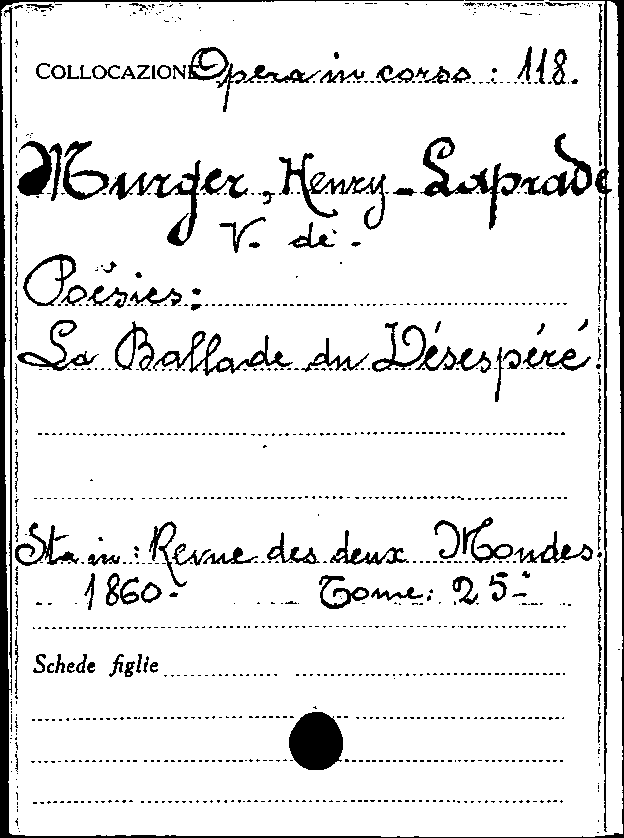 COLLOCAZIONE Opera in corso : 118.
Murger, Henry - Laprade
V. de -
Poésies:
La Ballade du Désespéré.
Sta in : Revue des deux Mondes.
1860- Tome: 25-
Schede figlie